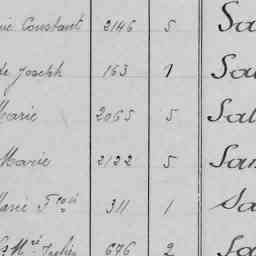 Constant 2146 5 Sa
de Joseph 163 1 Sa
Marie 2065 5 Sal
Marie 2122 5 San
Marie Fçois 311 1 Sa
676 2 Sa